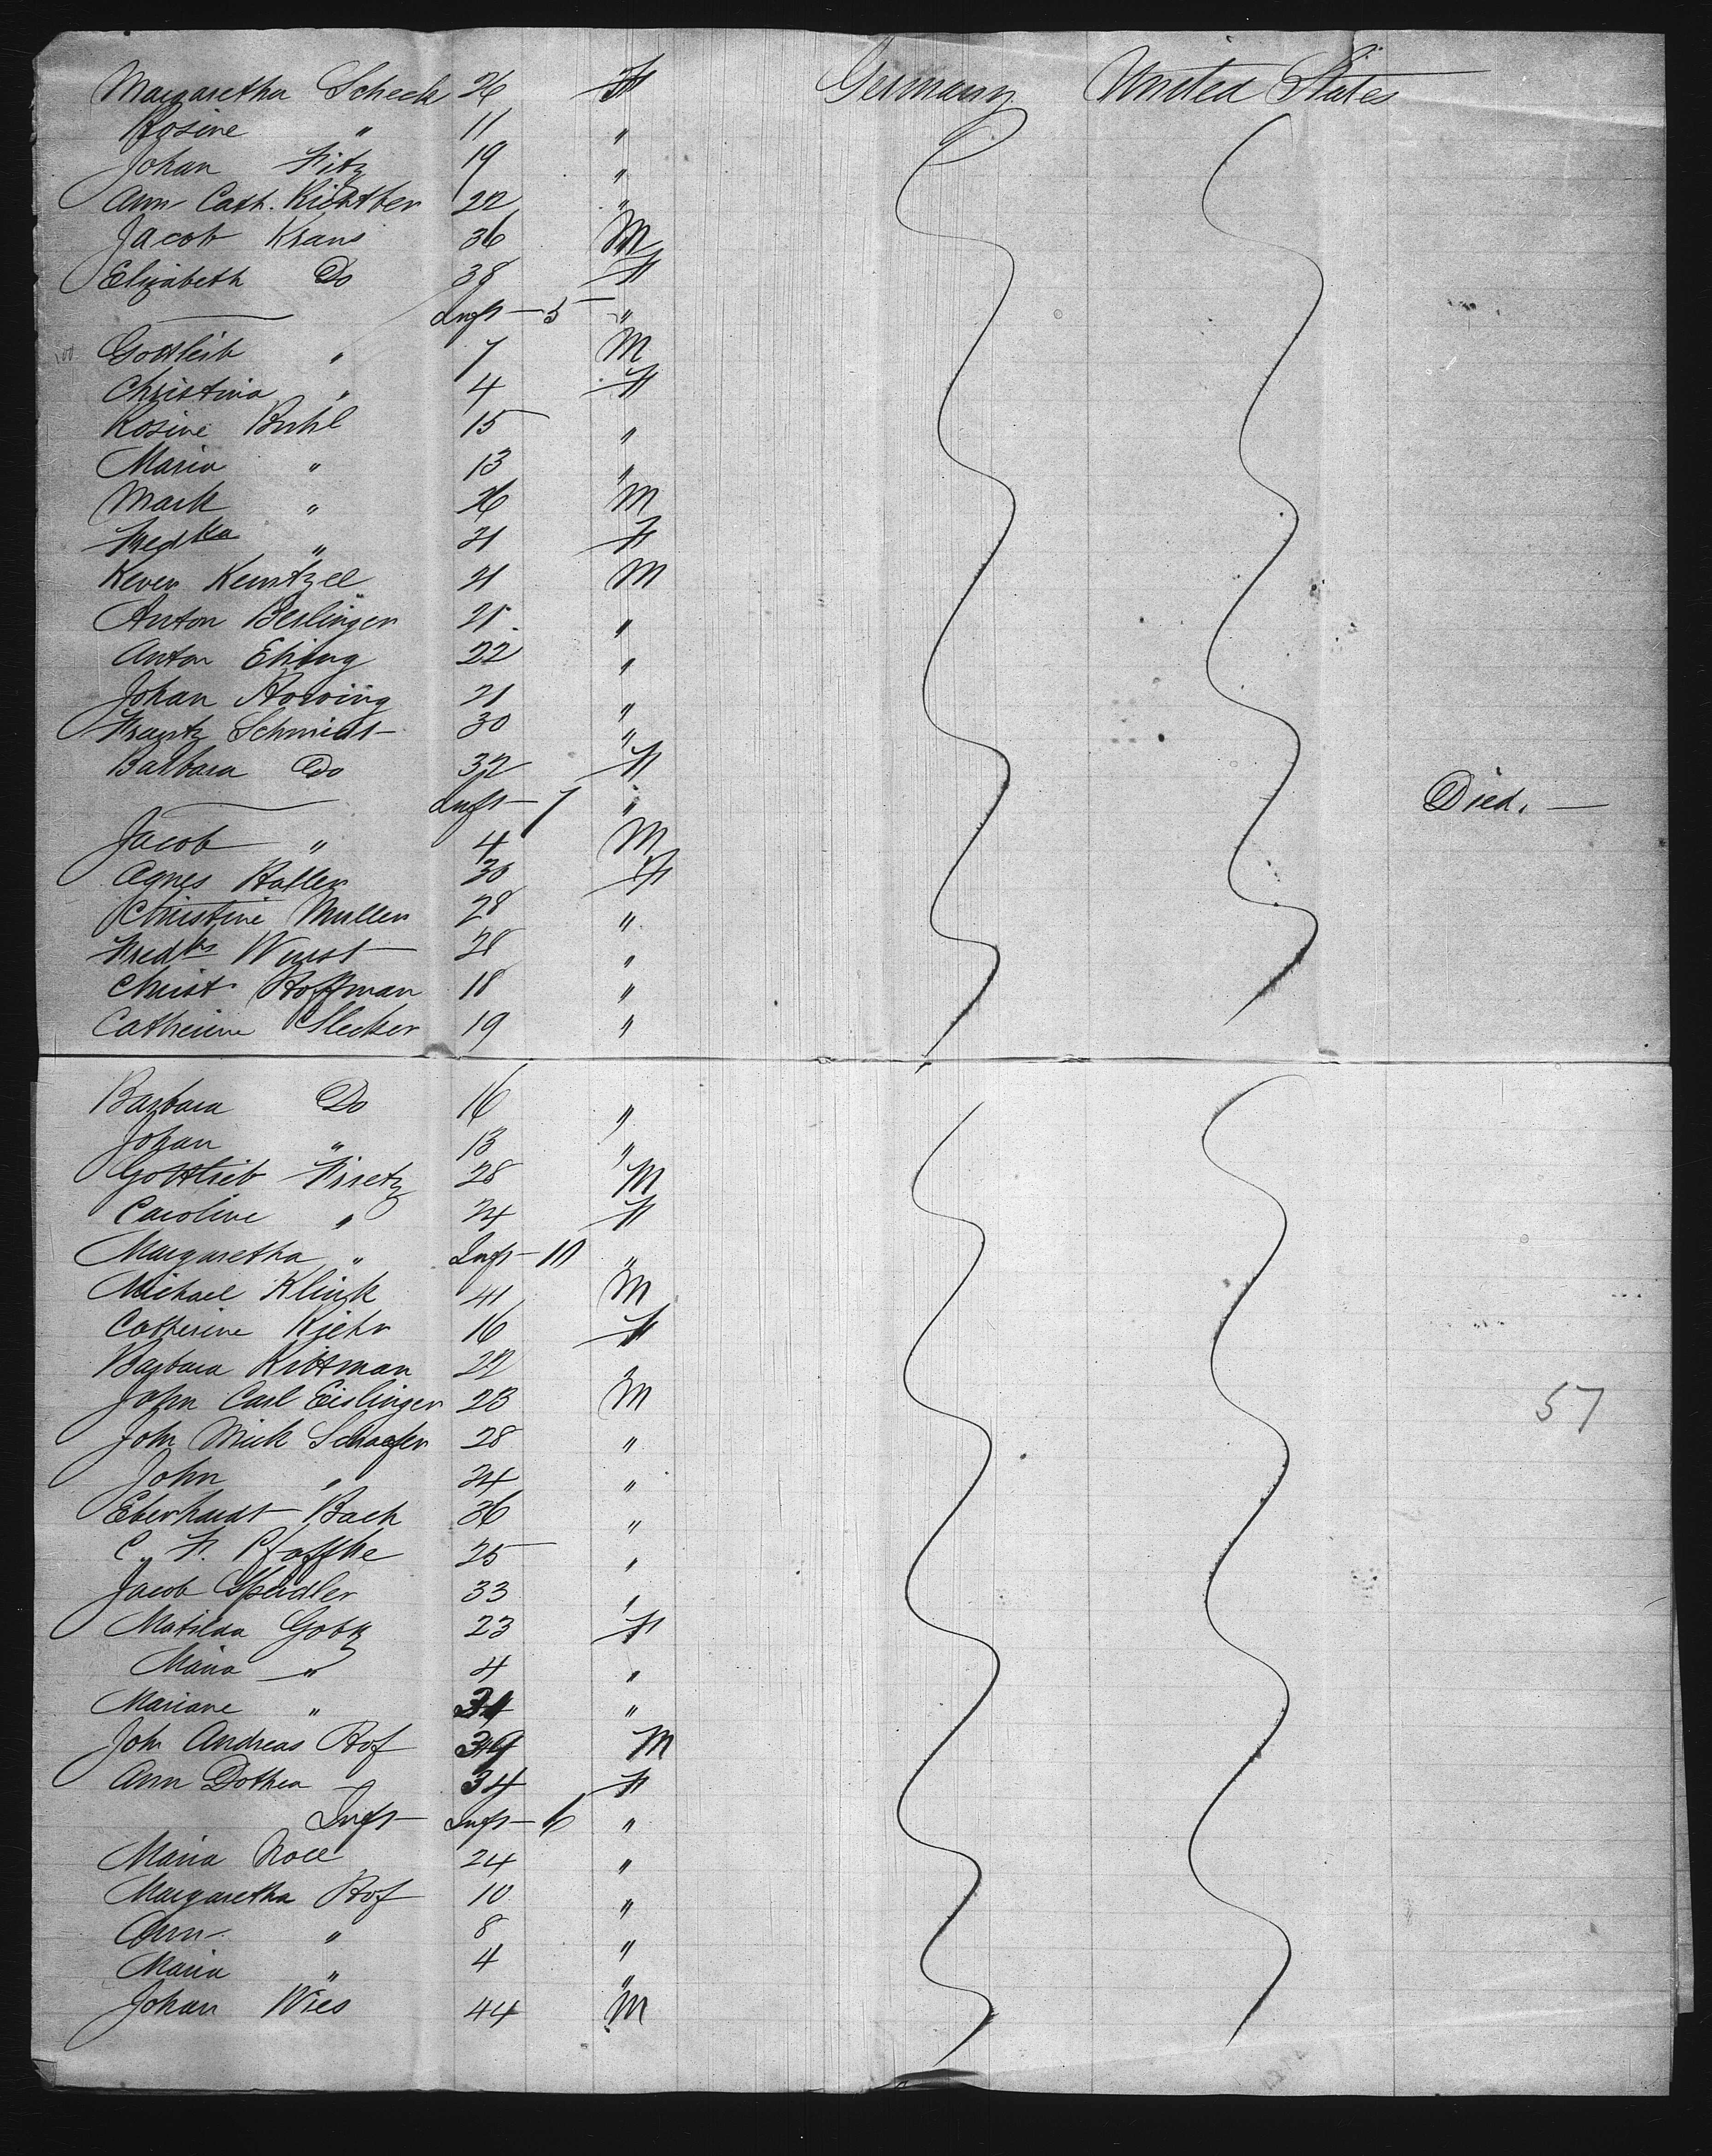 Margaretha Scheck 26 F Germany United States
Rosine " 11 "
Johan Fitz 19 "
Ann Cath. Richtber 22 "
Jacob Kraus 36 M
Elizabeth Do 38 F
Inft - 5 "
Gottleib " 7 M
Christina " 4 F
Rosine Buhl 15 "
Maria " 13 "
Mark " 26 M
Fredka " 21 F
Kever Keuntzel 21 M
Anton Beslinger 21 "
Anton Ehing 22 "
Johan Horoing 21 "
Frantz Schmidt 30 "
Barbara Do 32 F
Inft - 7 " Died. -
Jacob " 4 M
Agnes Haller 30 F
Christine Muller 28 "
Fredks Wurst 28 "
Christ Hoffman 18 "
Catherine Slecker 19 "
Barbara Do 16 "
Johan " 13 "
Gottlieb Firetz 28 M
Caroline " 24 F
Margaretha " Inft - 10 "
Michael Klink 41 M
Catherine Kiehr 16 F
Barbara Kittman 22 "
John Carl Eislinger 23 M
John Mick Schaefer 28 "
John " 24 "
Eberhardt Bach 36 "
C. F. Pfaffke 25 "
Jacob Speidler 33 "
Matilda Gotz 23 F
Maria " 4 "
Mariane " 34 "
Joh Andreas Hof 39 M
Ann Dothea 34 F
Inft Inft - 6 "
Maria Noll 24 "
Margaretha Hof 10 "
Ann " 8 "
Maria " 4 "
Johan Wies 44 M
57